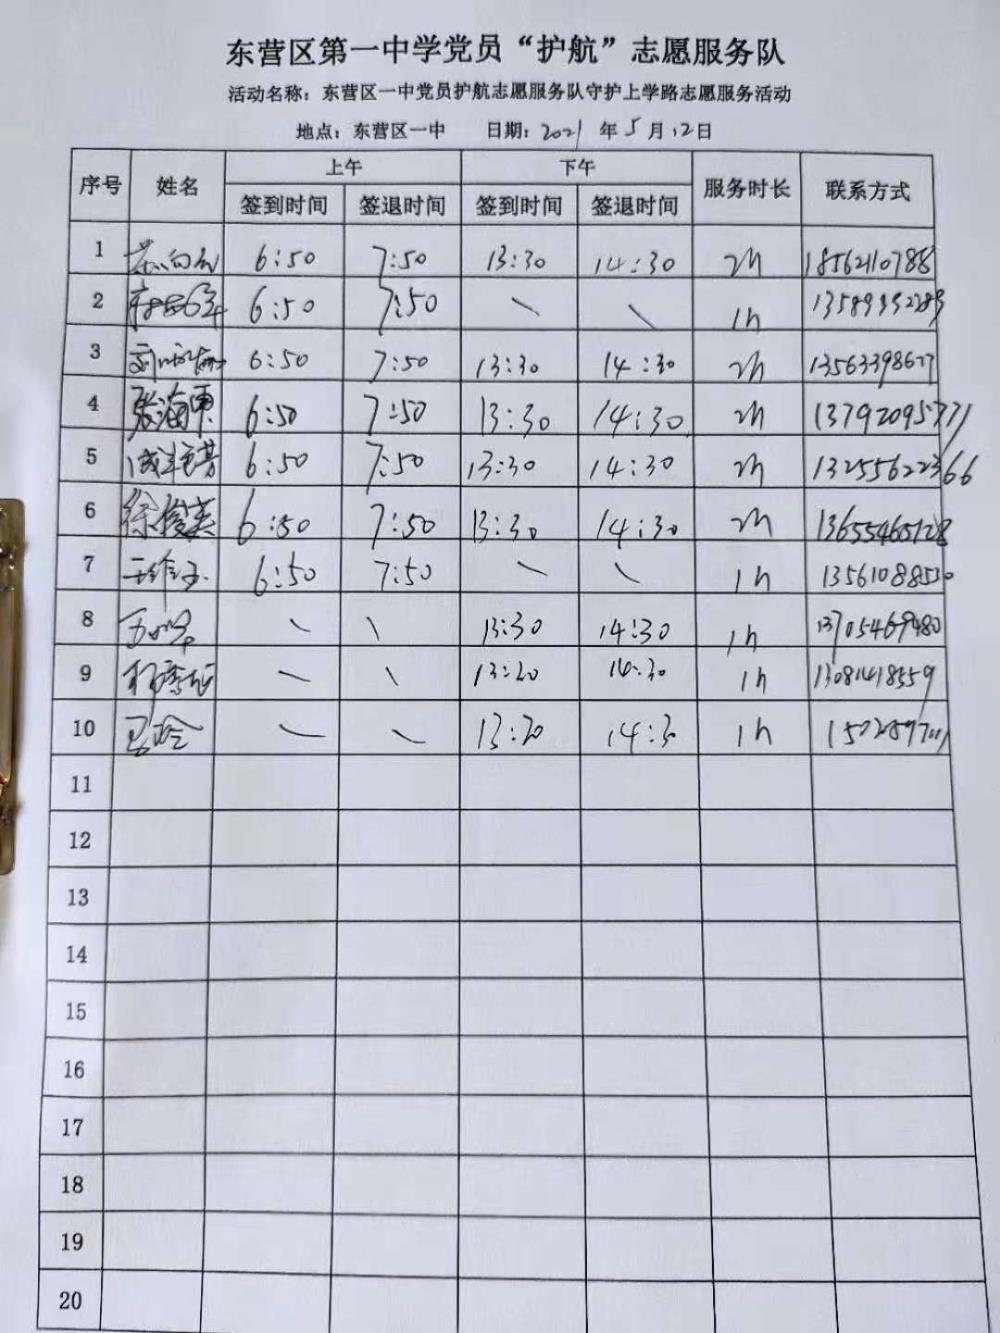 东营区第一中学党员“护航”志愿服务队
活动名称：东营区一中党员护航志愿服务队守护上学路志愿服务活动
地点：东营区一中 日期：2021 年 5 月 12 日
序号 姓名 上午 下午 服务时长 联系方式
签到时间 签退时间 签到时间 签退时间
1 6:50 7:50 13:30 14:30 2h
2 6:50 7:50 \ \ 1h
3 6:50 7:50 13:30 14:30 2h
4 张海军 6:50 7:50 13:30 14:30 2h 13792095771
5 6:50 7:50 13:30 14:30 2h 13255622366
6 徐俊英 6:50 7:50 13:30 14:30 2h 13655465128
7 6:50 7:50 \ \ 1h 13561088530
8 \ \ 13:30 14:30 1h 13705469480
9 \ \ 13:30 14:30 1h 13081418559
10 \ \ 13:30 14:3 1h
11
12
13
14
15
16
17
18
19
20